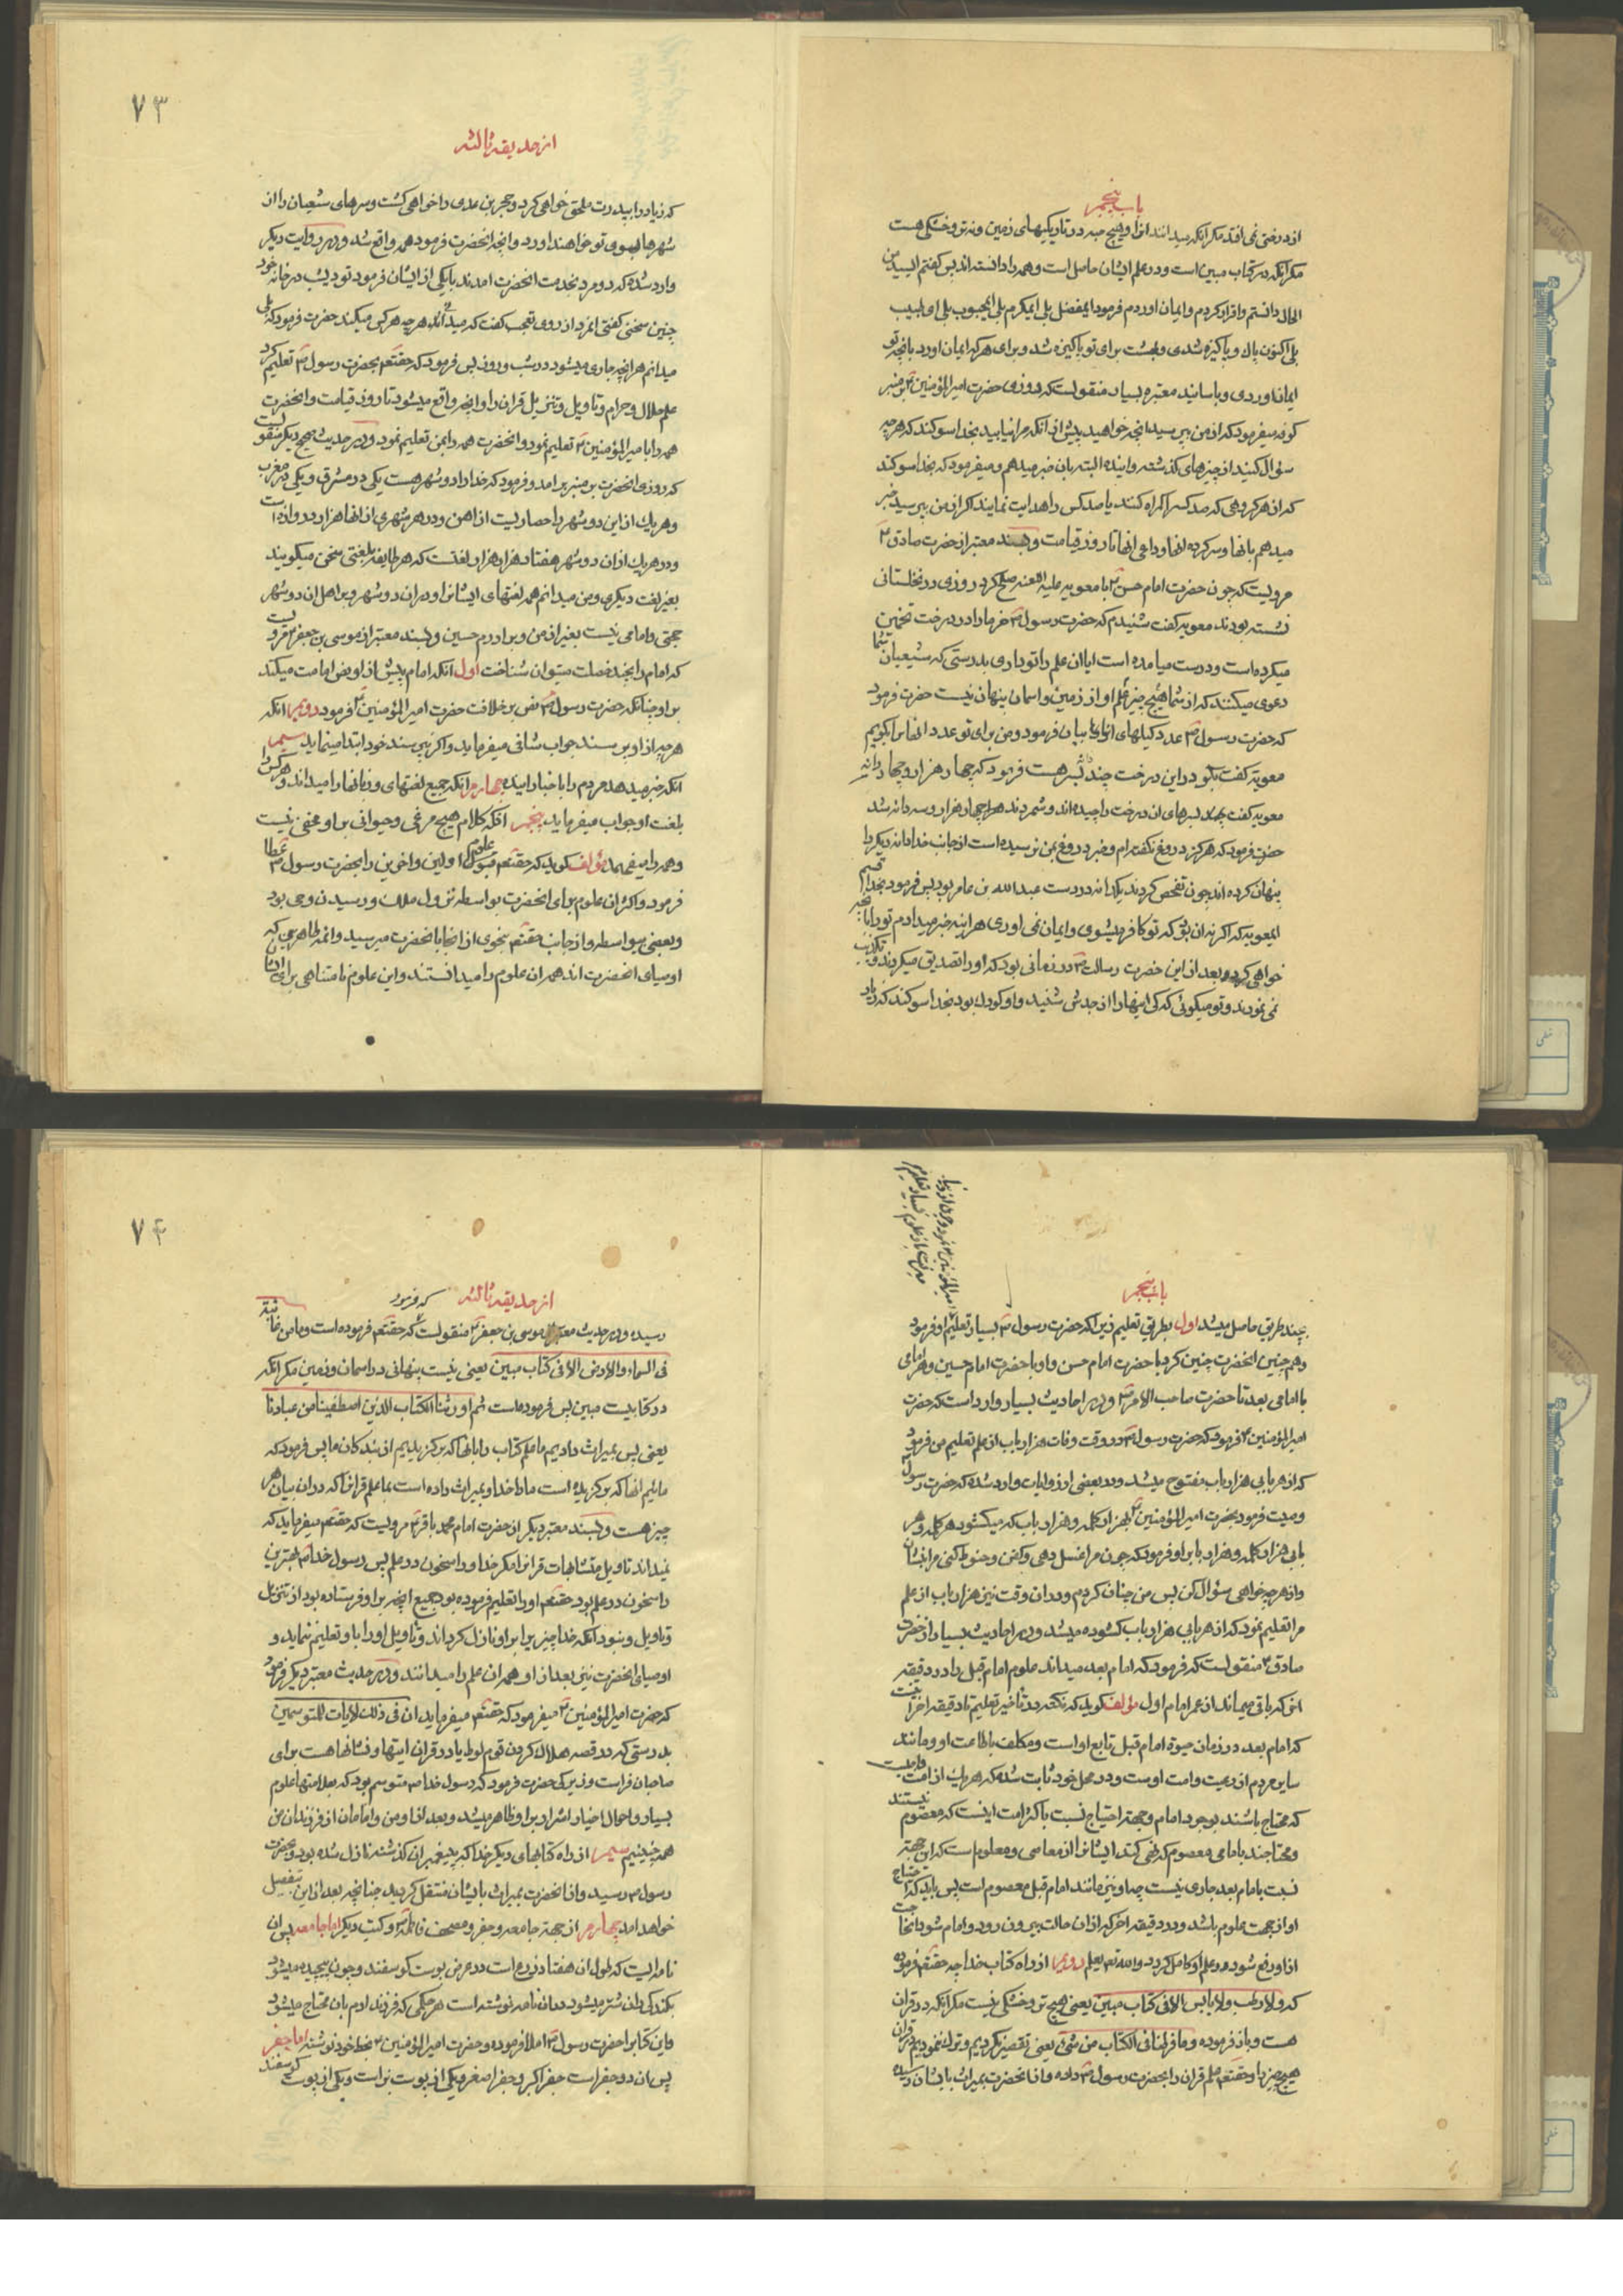 باب پنجم
از درختی نمی افتد مکر انکه میدانند انرا و هیچ حبه در تاریکیهای زمین و نه تر و خشکی هست
مکر انکه در کتاب مبین است و در علم ایشان حاصل است و همه را دانسته اند پس کفتم ای سید من
الحال دانستم و اقرار کردم و ایمان اوردم فرمود ایمفضل بلی ایمکرم بلی ایمحبوب بلی ای طبیب
بلی اکنون پاک و پاکیزه شدی و بهشت برای تو پاکیزه شد و برای هر که ایمان اورد بانچه تو
ایمان اوردی و باسانید معتبره بسیار منقولست که روزی حضرت امیر المؤمنین بر منبر
کوفه میفرمود که از من بپرسید انچه خواهید پیش از انکه مرا نیابید بخدا سوکند که هر چه
سؤال کنید از چیزهای کذشته و اینده البته بان خبر میدهم و میفرمود که بخدا سوکند
که از هر کروهی که صد کس را کمراه کنند یا صد کس را هدایت نمایند اکر از من بپرسید خبر
میدهم بانها و سرکرده انها و داعی انها تا روز قیامت و بسند معتبر از حضرت صادق ۴
مرویست که چون حضرت امام حسن با معویه علیه اللعنه صلح کرد روزی در نخلستانی
نشسته بودند معویه کفت شنیدم که حضرت رسول خرما را در درخت تخمین
میکرده است و درست میامده است ایا ان علم را تو داری بدرستی که شیعیان شما
دعوی میکنند که از شما هیچ چیز علم او از زمین و اسمان پنهان نیست حضرت فرمود
که حضرت رسول عدد کیلهای انرا بیان فرمود و من برای تو عدد انها را بکویم
معویه کفت بکو در این درخت چند بسر هست فرمود که چهار هزار و چهار دانه
معویه کفت بسرهای ان درخت را چیده اند و شمردند همه چهار هزار و سه دانه شد
حضرت فرمود که هرکز دروغ نکفته ام و خبر دروغ بمن نرسیده است از جانب خدا دانه دیکر را
پنهان کرده اند چون تفحص کردند یکدانه در دست عبد الله بن عامر بود پس فرمود بخدا قسم
ایمعویه که اکر نه ان بود که تو کافر میشوی و ایمان نمی اوری هراینه خبر میدادم تو را بانچه
خواهی کرد و بعد از این حضرت رسالت در زمانی بود که او را تصدیق میکردند و تکذیب
نمی نمودند و تو میکوئی که کی اینها را از جدش شنید و او کودک بود بخدا سوکند که زیاد
۷۳
از حدیقه ثالثه
که زیاد را بپدرت ملحق خواهی کرد و حجر بن عدی را خواهی کشت و سرهای شیعیان را از
شهرها بسوی تو خواهند اورد و انچه انحضرت فرمود همه واقع شد و در روایت دیکر
وارد شده که دو مرد بخدمت انحضرت امدند با یکی از ایشان فرمود تو دیشب در خانه خود
چنین سخنی کفتی انمرد از روی تعجب کفت که میداند هر چه هر کس میکند حضرت فرمود که بلی
میدانم هر انچه جاری میشود در شب و روز پس فرمود که حقتعم بحضرت رسول تعلیم کرد
علم حلال و حرام و تاویل و تنزیل قران را و انچه واقع میشود تا روز قیامت و انحضرت
همه را بامیر المؤمنین تعلیم نمود و انحضرت همه را بمن تعلیم نمود و در حدیث صحیح دیکر منقولست
که روزی انحضرت بر منبر برامد و فرمود که خدا را دو شهر هست یکی در مشرق و یکی در مغرب
و هر یک از این دو شهر را حصاریست از اهن و در هر شهری از انها هزار دروازه است
و در هر یک از ان دو شهر هفتاد هزار هزار لغتست که هر طایفه بلغتی سخن میکویند
بغیر لغت دیکری و من میدانم همه لغتهای ایشانرا و در ان دو شهر و بر اهل ان دو شهر
حجتی و امامی نیست بغیر از من و برادرم حسین و بسند معتبر از موسی بن جعفر مرویست
که امام را بچند خصلت میتوان شناخت اول انکه امام پیش از او نص امامت میکند
بر او چنانکه حضرت رسول نص بر خلافت حضرت امیر المؤمنین فرمود دویم انکه
هر چه از او پرسند جواب شافی میفرماید و اکر نپرسند خود ابتدا مینماید سیم
انکه خبر میدهد مردم را باخبار اینده چهارم انکه جمیع لغتهای و زبانها را میداند و هر کس را
بلغت او جواب میفرماید پنجم انکه کلام هیچ مرغی و حیوانی بر او مخفی نیست
و همه را میفهمد مؤلف کوید که حقتعم علوم اولین و اخرین را بحضرت رسول عطا
فرمود و اکثر ان علوم برای انحضرت بواسطه نزول ملک و رسیدن وحی بود
و بعضی بیواسطه و از جانب حقتعم بنحوی از انحا بانحضرت میرسید و ائمه طاهرین که
اوصیای انحضرت اند همه ان علوم را میدانستند و این علوم نامتناهی برای ایشان
باب پنجم
بچند طریق حاصل میشد اول بطریق تعلیم زیرا که حضرت رسول بسیار تعلیم او فرمود
و همچنین انحضرت چنین کرد با حضرت امام حسن و او با حضرت امام حسین و هر امامی
با امامی بعد تا حضرت صاحب الامر و در احادیث بسیار وارد است که حضرت
امیر المؤمنین فرمود که حضرت رسول در وقت وفات هزار باب از علم تعلیم من فرمود
که از هر بابی هزار باب مفتوح میشد و در بعضی از روایات وارد شده که حضرت رسول
وصیت فرمود بحضرت امیر المؤمنین بهزار کلمه و هزار باب که میکشود هر کلمه و هر
بابی هزار کلمه و هزار باب را و فرمود که چون مرا غسل دهی و کفن و حنوط کنی مرا بنشان
و از هر چه خواهی سؤال کن پس من چنان کردم و در ان وقت نیز هزار باب از علم
مرا تعلیم نمود که از هر بابی هزار باب کشوده میشد و در احادیث بسیار از حضرت
صادق منقولست که فرمود که امام بعد میداند علوم امام قبل را در دقیقه
اخر که باقی میماند از عمر امام اول مؤلف کوید که نکته در تاخیر تعلیم تا دقیقه اخر اینست
که امام بعد در زمان حیوة امام قبل تابع او است و مکلف باطاعت او و مانند
سایر مردم از رعیت و امت اوست و در محل خود ثابت شده که هر یک از امت
که محتاج باشند بوجود امام و جهة احتیاج نسبت باکثر امت اینست که معصوم نیستند
و محتاجند بامامی معصوم که نهی کند ایشانرا از معاصی و معلوم است که این جهة
نسبت بامام بعد جاری نیست چه او نیز مانند امام قبل معصوم است پس باید که احتیاج
او از جهت علوم باشد و در دقیقه اخر که از ان حالت بیرون رود و امام شود
از او رفع شود و علم او کامل کردد والله تعم یعلم دویم از راه کتاب خدا چه حقتعم فرموده
که ولا رطب ولا یابس الا فی کتاب مبین یعنی هیچ تر و خشکی نیست مکر انکه در قران
هست و باز فرموده وما فرطنا فی الکتاب من شئ یعنی تقصیر نکردیم و ترک ننمودیم در قران
هیچ چیز را و حقتعم علم قران را بحضرت رسول داده و از انحضرت بمیراث بایشان رسیده
۷۴
از حدیقه ثالثه
رسیده و در حدیث معتبر از موسی بن جعفر منقولست که فرمود که حقتعم فرموده است وما من غائبة
فی السماء والارض الا فی کتاب مبین یعنی نیست پنهانی در اسمان و زمین مکر انکه
در کتابیست مبین پس فرموده است ثم اورثنا الکتاب الذین اصطفینا من عبادنا
یعنی پس بمیراث دادیم ما علم کتاب را بانها که برکزیدیم از بندکان ما پس فرمود که
مائیم انها که برکزیده است ما را خدا و بمیراث داده است بما علم قرانرا که در ان بیان هر
چیز هست و بسند معتبر دیکر از حضرت امام محمد باقر مرویست که حقتعم میفرماید که
نمیداند تاویل متشابهات قرانرا مکر خدا و راسخون در علم پس رسول خدا بهترین
راسخون در علم بود حقتعم او را تعلیم فرموده بود جمیع انچه بر او فرستاده بود از تنزیل
و تاویل و نبود انکه خدا چیزیرا بر او نازل کرداند و تاویل او را باو تعلیم ننماید و
اوصیای انحضرت نیز بعد از او همه ان علم را میدانند و در حدیث معتبر دیکر فرمود
که حضرت امیر المؤمنین میفرمود که حقتعم میفرماید ان فی ذلک لایات للمتوسمین
بدرستی که در قصه هلاک کردن قوم لوط یا در قران ایتها و نشانها هست برای
صاحبان فراست و زیرکی حضرت فرمود که رسول خدا متوسم بود که بعلامتها علوم
بسیار و احوال اخیار و اشرار بر او ظاهر میشد و بعد از او من و امامان از فرزندان من
همه چنینیم سیم از راه کتابهای دیکر خدا که بر پیغمبران کذشته نازل شده بود و بحضرت
رسول رسید و از انحضرت بمیراث بایشان منتقل کردید چنانچه بعد از این بتفصیل
خواهد امد چهارم از جهة جامعه و جفر و مصحف فاطمه و کتب دیکر اما جامعه پس ان
نامه ایست که طول ان هفتاد ذرع است در عرض پوست کوسفند و چون پیچیده میشود
بکندکی ران شتر میشود در ان نامه نوشته است هر حکمی که فرزند ادم بان محتاج میشود
و این کتابرا حضرت رسول املا فرموده و حضرت امیر المؤمنین بخط خود نوشته اما جفر
پس ان دو جفر است جفر اکبر و جفر اصغر و یکی از پوست بز است و یکی از پوست کوسفند